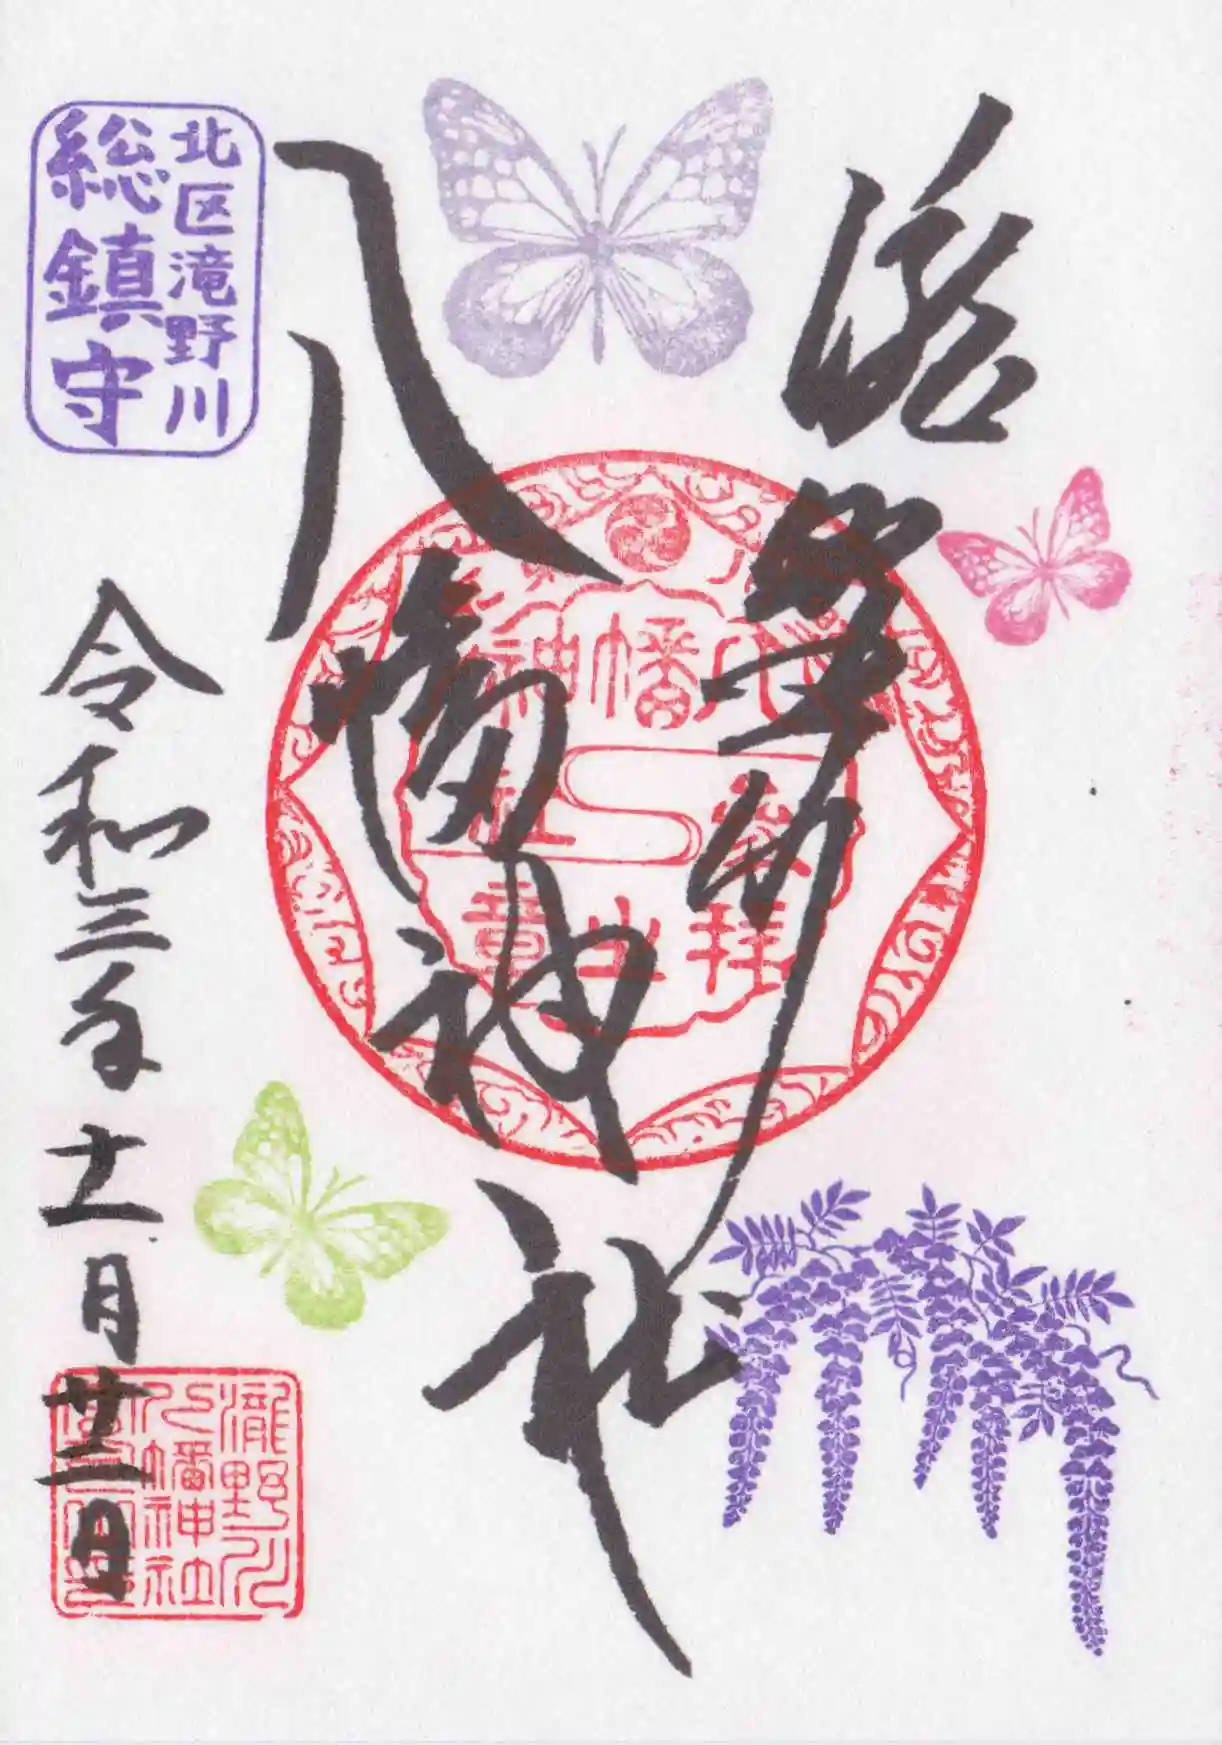 滝野川
八幡神社
北区滝野川
総鎮守
八幡神社
參拝之章
令和三年十一月廿二日
瀧野川
八幡神社